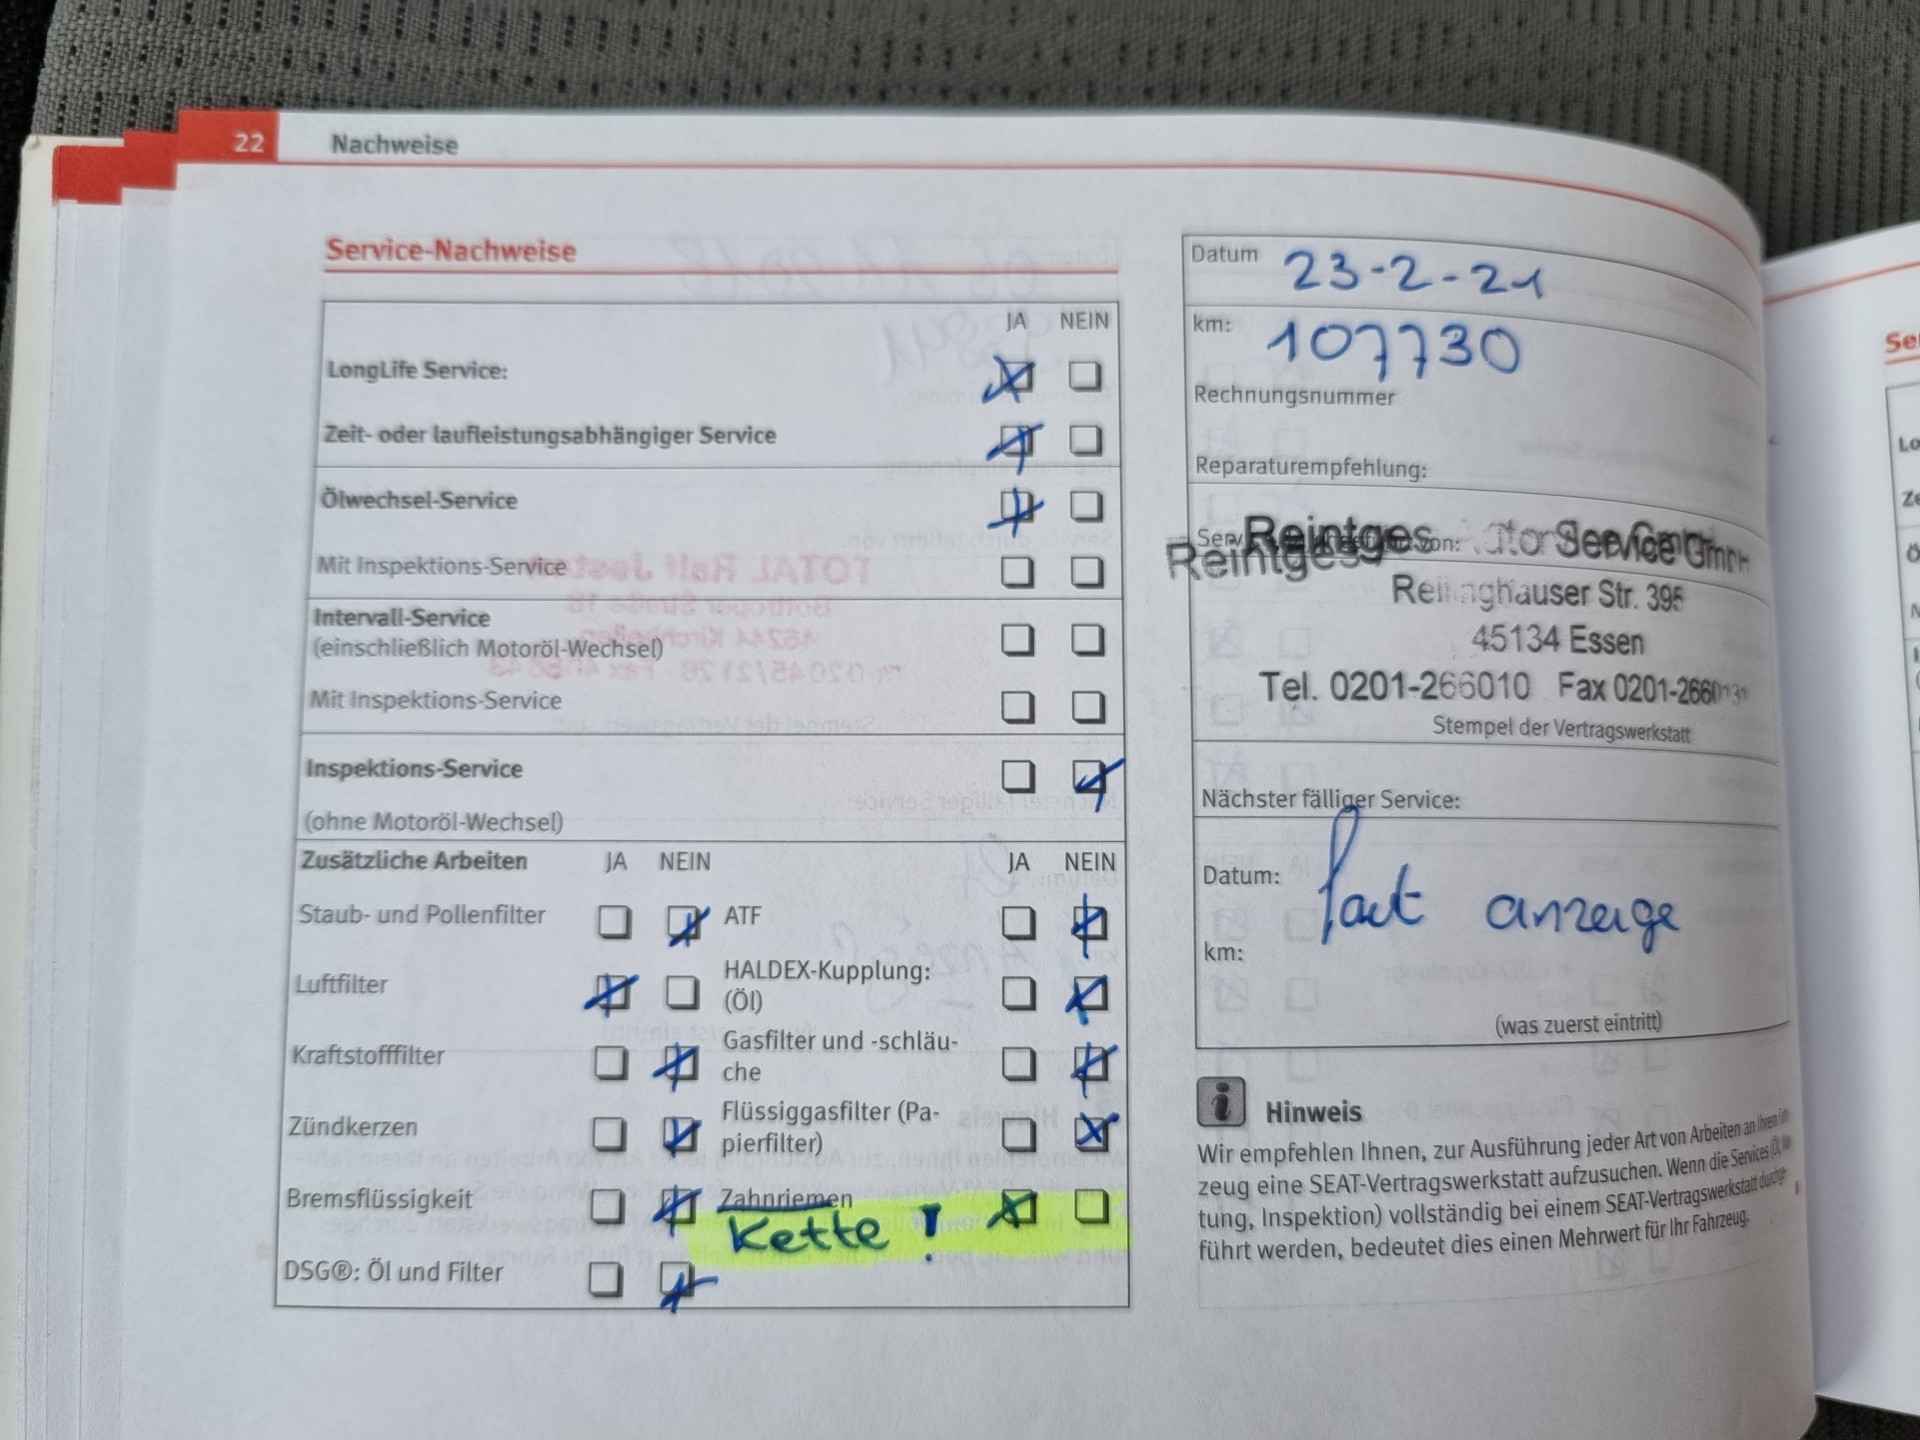 22 Nachweise
Service-Nachweise
JA NEIN
LongLife Service:
Zeit- oder laufleistungsabhängiger Service
Ölwechsel-Service
Mit Inspektions-Service
Intervall-Service
(einschließlich Motoröl-Wechsel)
Mit Inspektions-Service
Inspektions-Service
(ohne Motoröl-Wechsel)
Zusätzliche Arbeiten JA NEIN JA NEIN
Staub- und Pollenfilter ATF
Luftfilter HALDEX-Kupplung:
(Öl)
Kraftstofffilter Gasfilter und -schläu-
che
Zündkerzen Flüssiggasfilter (Pa-
pierfilter)
Bremsflüssigkeit Zahnriemen
Kette !
DSG®: Öl und Filter
Datum 23-2-21
km: 107730
Rechnungsnummer
Reparaturempfehlung:
von:
Reintges Service GmbH
Reintges
Str. 395
45134 Essen
Tel. 0201-266010 Fax
Stempel der Vertragswerkstatt
Nächster fälliger Service:
Datum:
laut anzeige
km:
(was zuerst eintritt)
Hinweis
Wir empfehlen Ihnen, zur Ausführung jeder Art von Arbeiten an Ihrem
zeug eine SEAT-Vertragswerkstatt aufzusuchen. Wenn die Services
tung, Inspektion) vollständig bei einem SEAT-Vertragswerkstatt durchge-
führt werden, bedeutet dies einen Mehrwert für Ihr Fahrzeug.